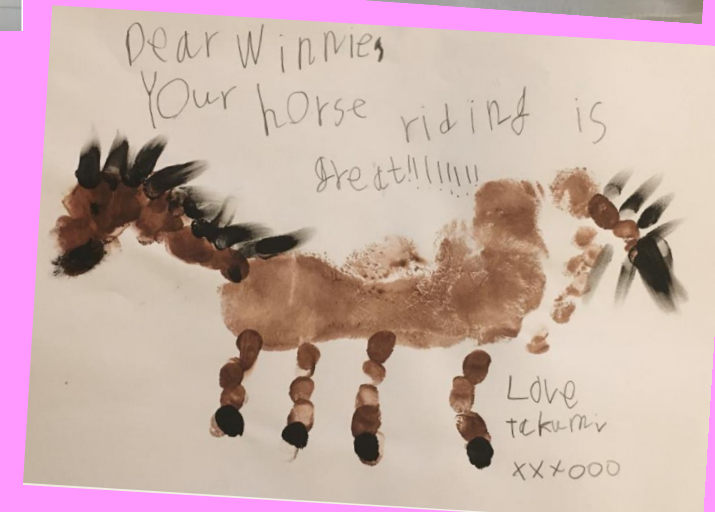 Dear Winnie,
Your horse riding is
great!!!!!!!!!
Love
takumi
xxxooo